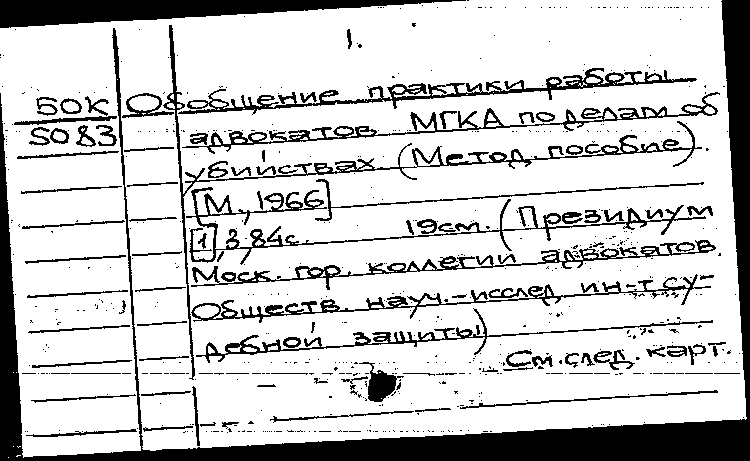 1.
50К Обобщение практики работы
5083 адвокатов МГКА по делам об
убийствах (Метод. пособие).
[М., 1966]
[1], 3, 84с. 19см. (Президиум
Моск. гор. коллегии адвокатов.
Обществ. науч.-исслед. ин-т су-
дебной защиты)
См. след. карт.